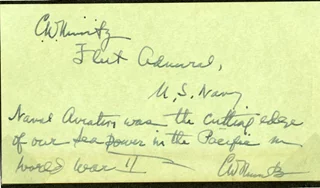 CWNimitz
Fleet Admiral,
U.S. Navy
Naval Aviation was the cutting edge
of our sea power in the Pacific in
World War II
CWNimitz